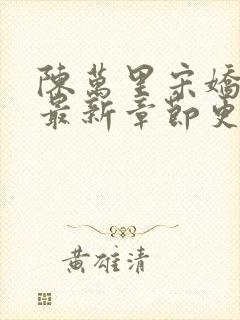 陳萬里宋嬌
最新章節史
黃雄清